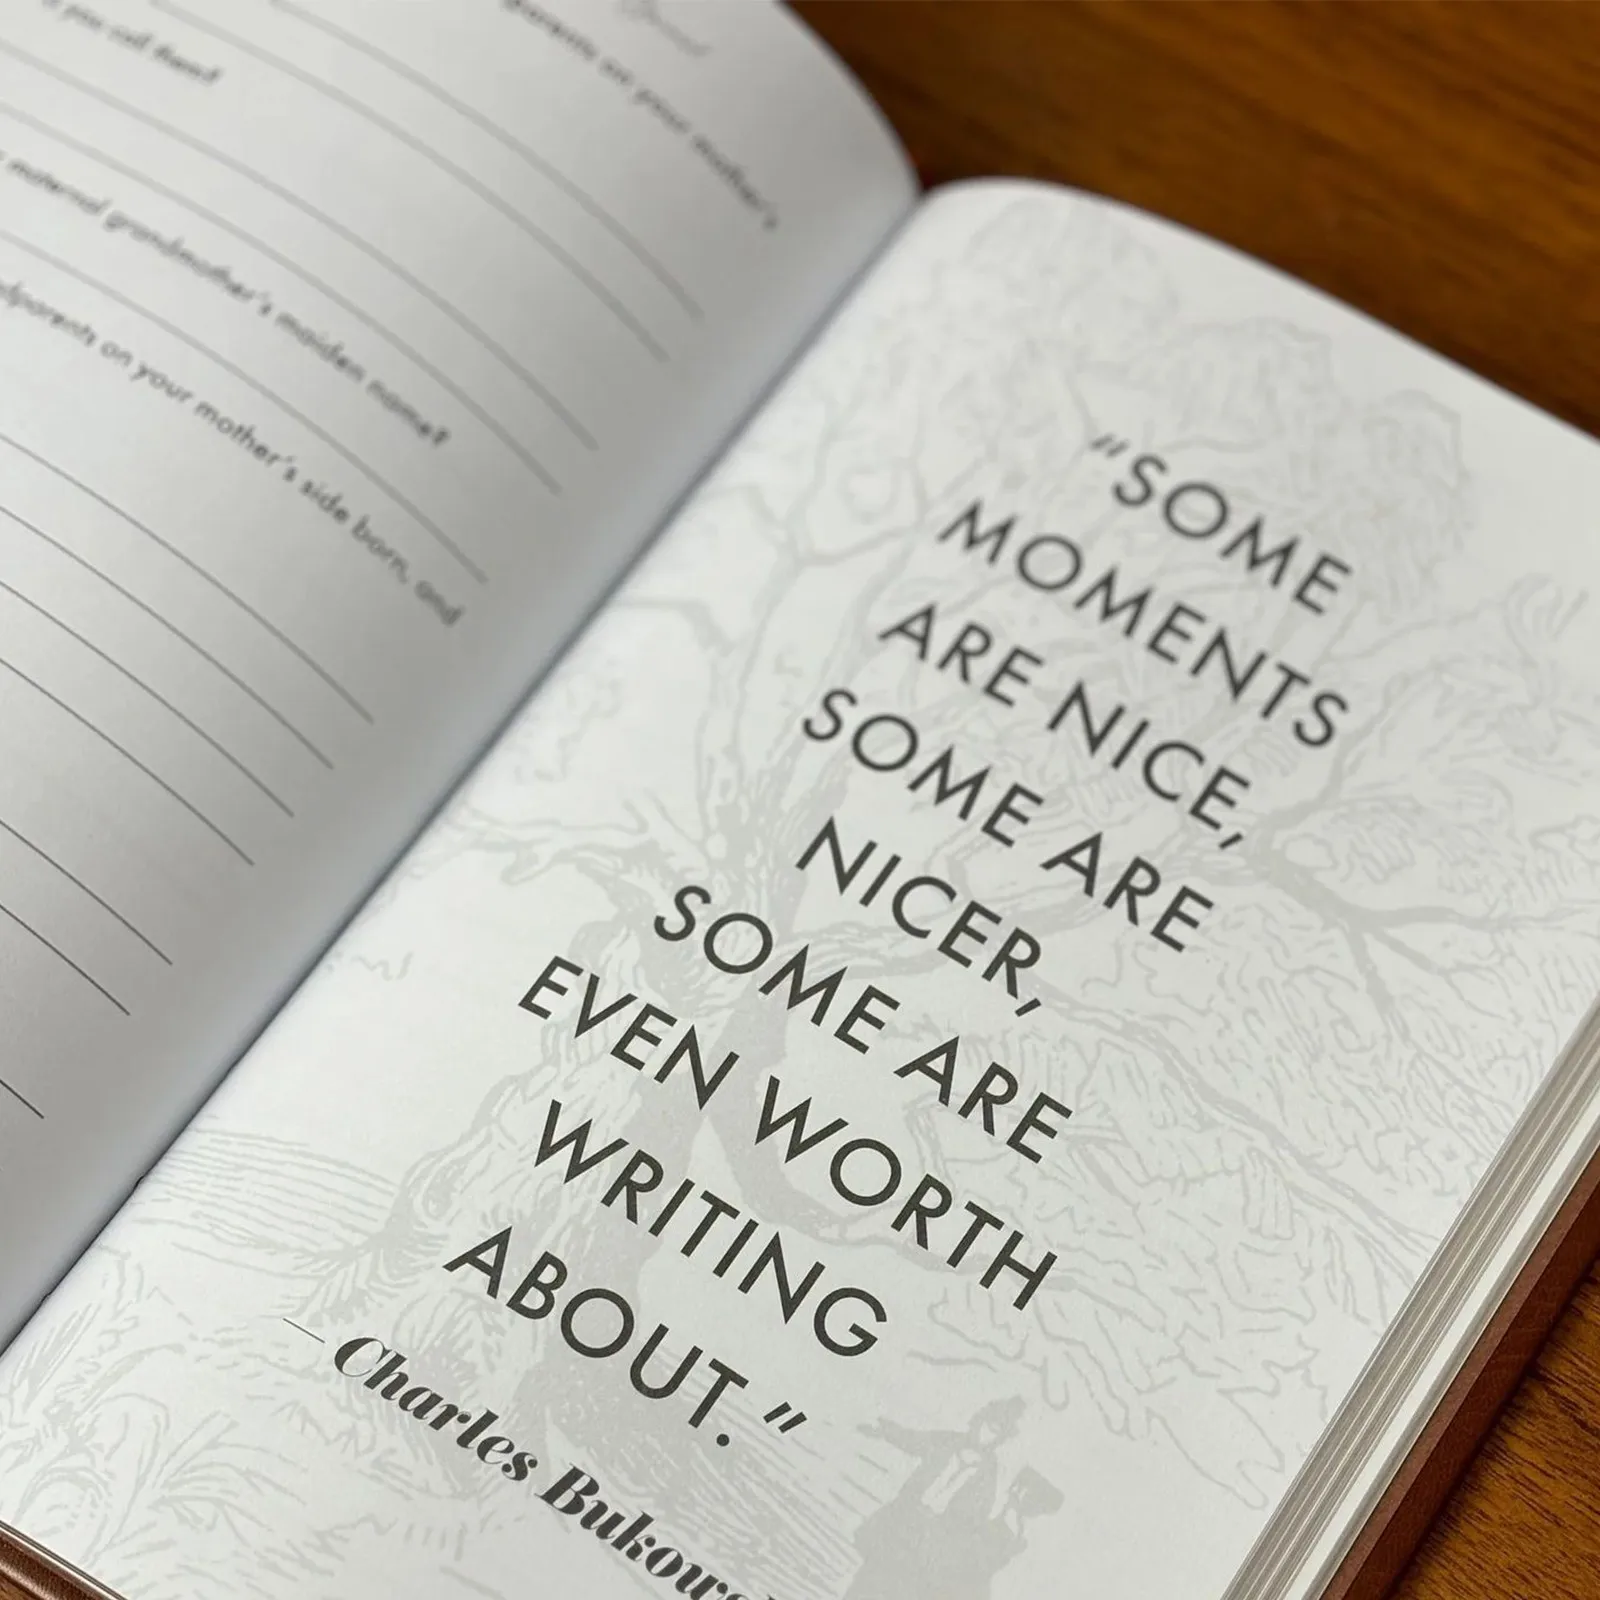 parents on your mother's
you call them?
maternal grandmother's maiden name?
on your mother's side born, and
"SOME
MOMENTS
ARE NICE,
SOME ARE
NICER,
SOME ARE
EVEN WORTH
WRITING
ABOUT."
— Charles Bukows